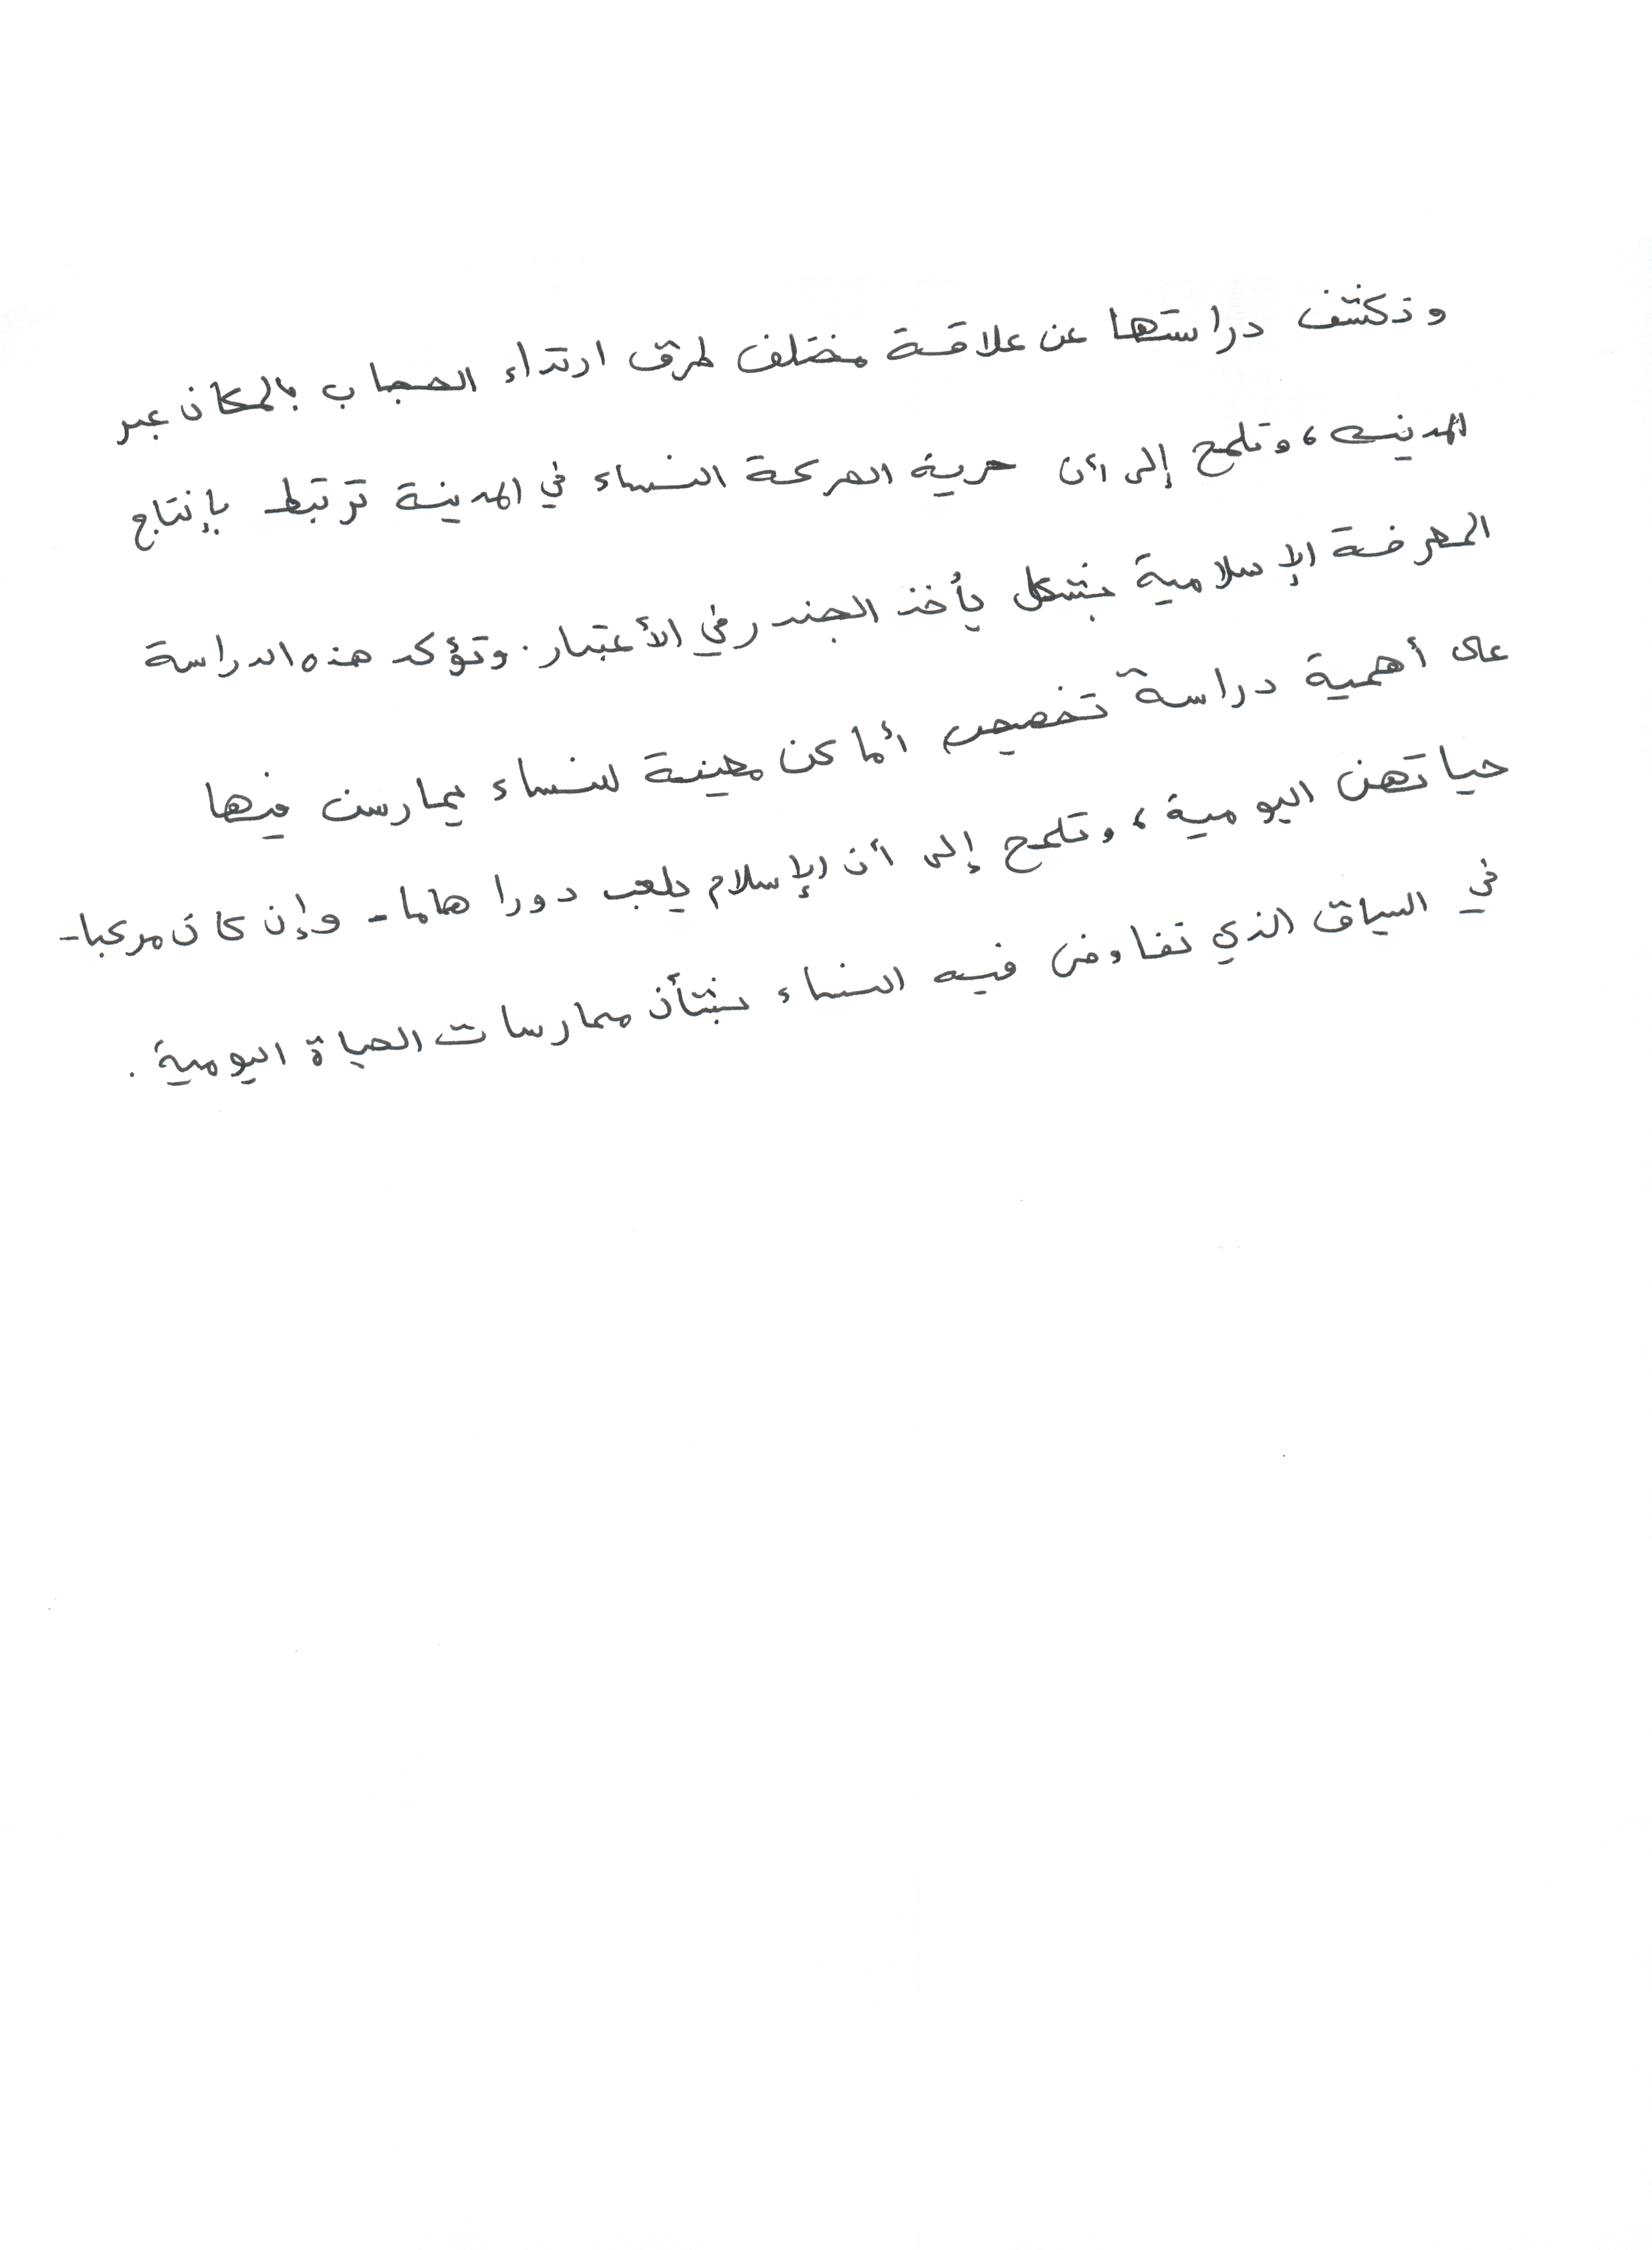 وتكشف دراستها عن علاقة مختلف طرق ارتداء الحجاب بالمكان عبر
المدينة، وتلمح إلى أن حرية الحركة النساء في المدينة ترتبط بإنتاج
المعرفة الإسلامية بشكل يأخذ الجندر في الأعتبار. وتؤكد هذه الدراسة
على أهمية دراسة تخصيص أماكن معينة للنساء يمارسن فيها
حياتهن اليومية، وتلمح إلى أن الإسلام يلعب دورا هاما - وإن كان مركبا -
في السياق الذي تفاوض فيه النساء بشأن ممارسات الحياة اليومية.